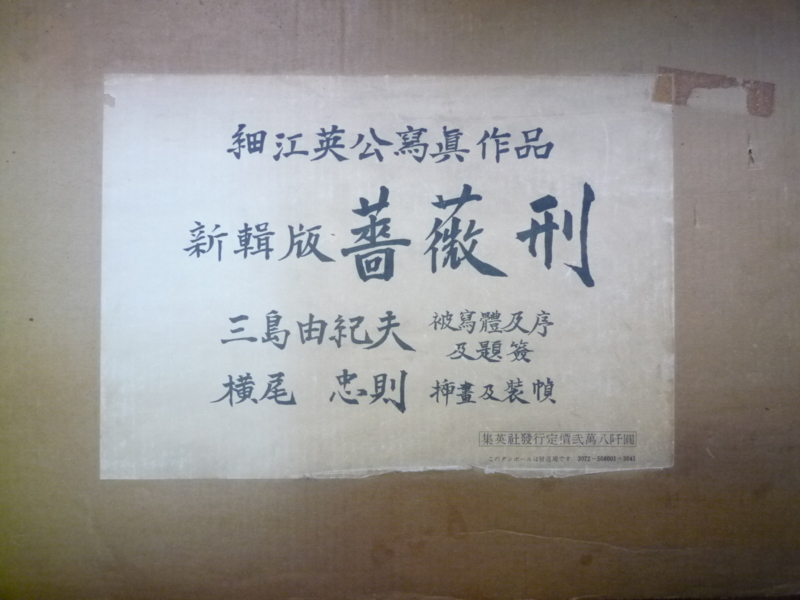 細江英公寫眞作品
新輯版 薔薇刑
三島由紀夫 被寫體及序
及題簽
横尾 忠則 挿畫及装幀
集英社發行定價弐萬八阡圓
このダンボールは輸送用です。 3072-508001-3041